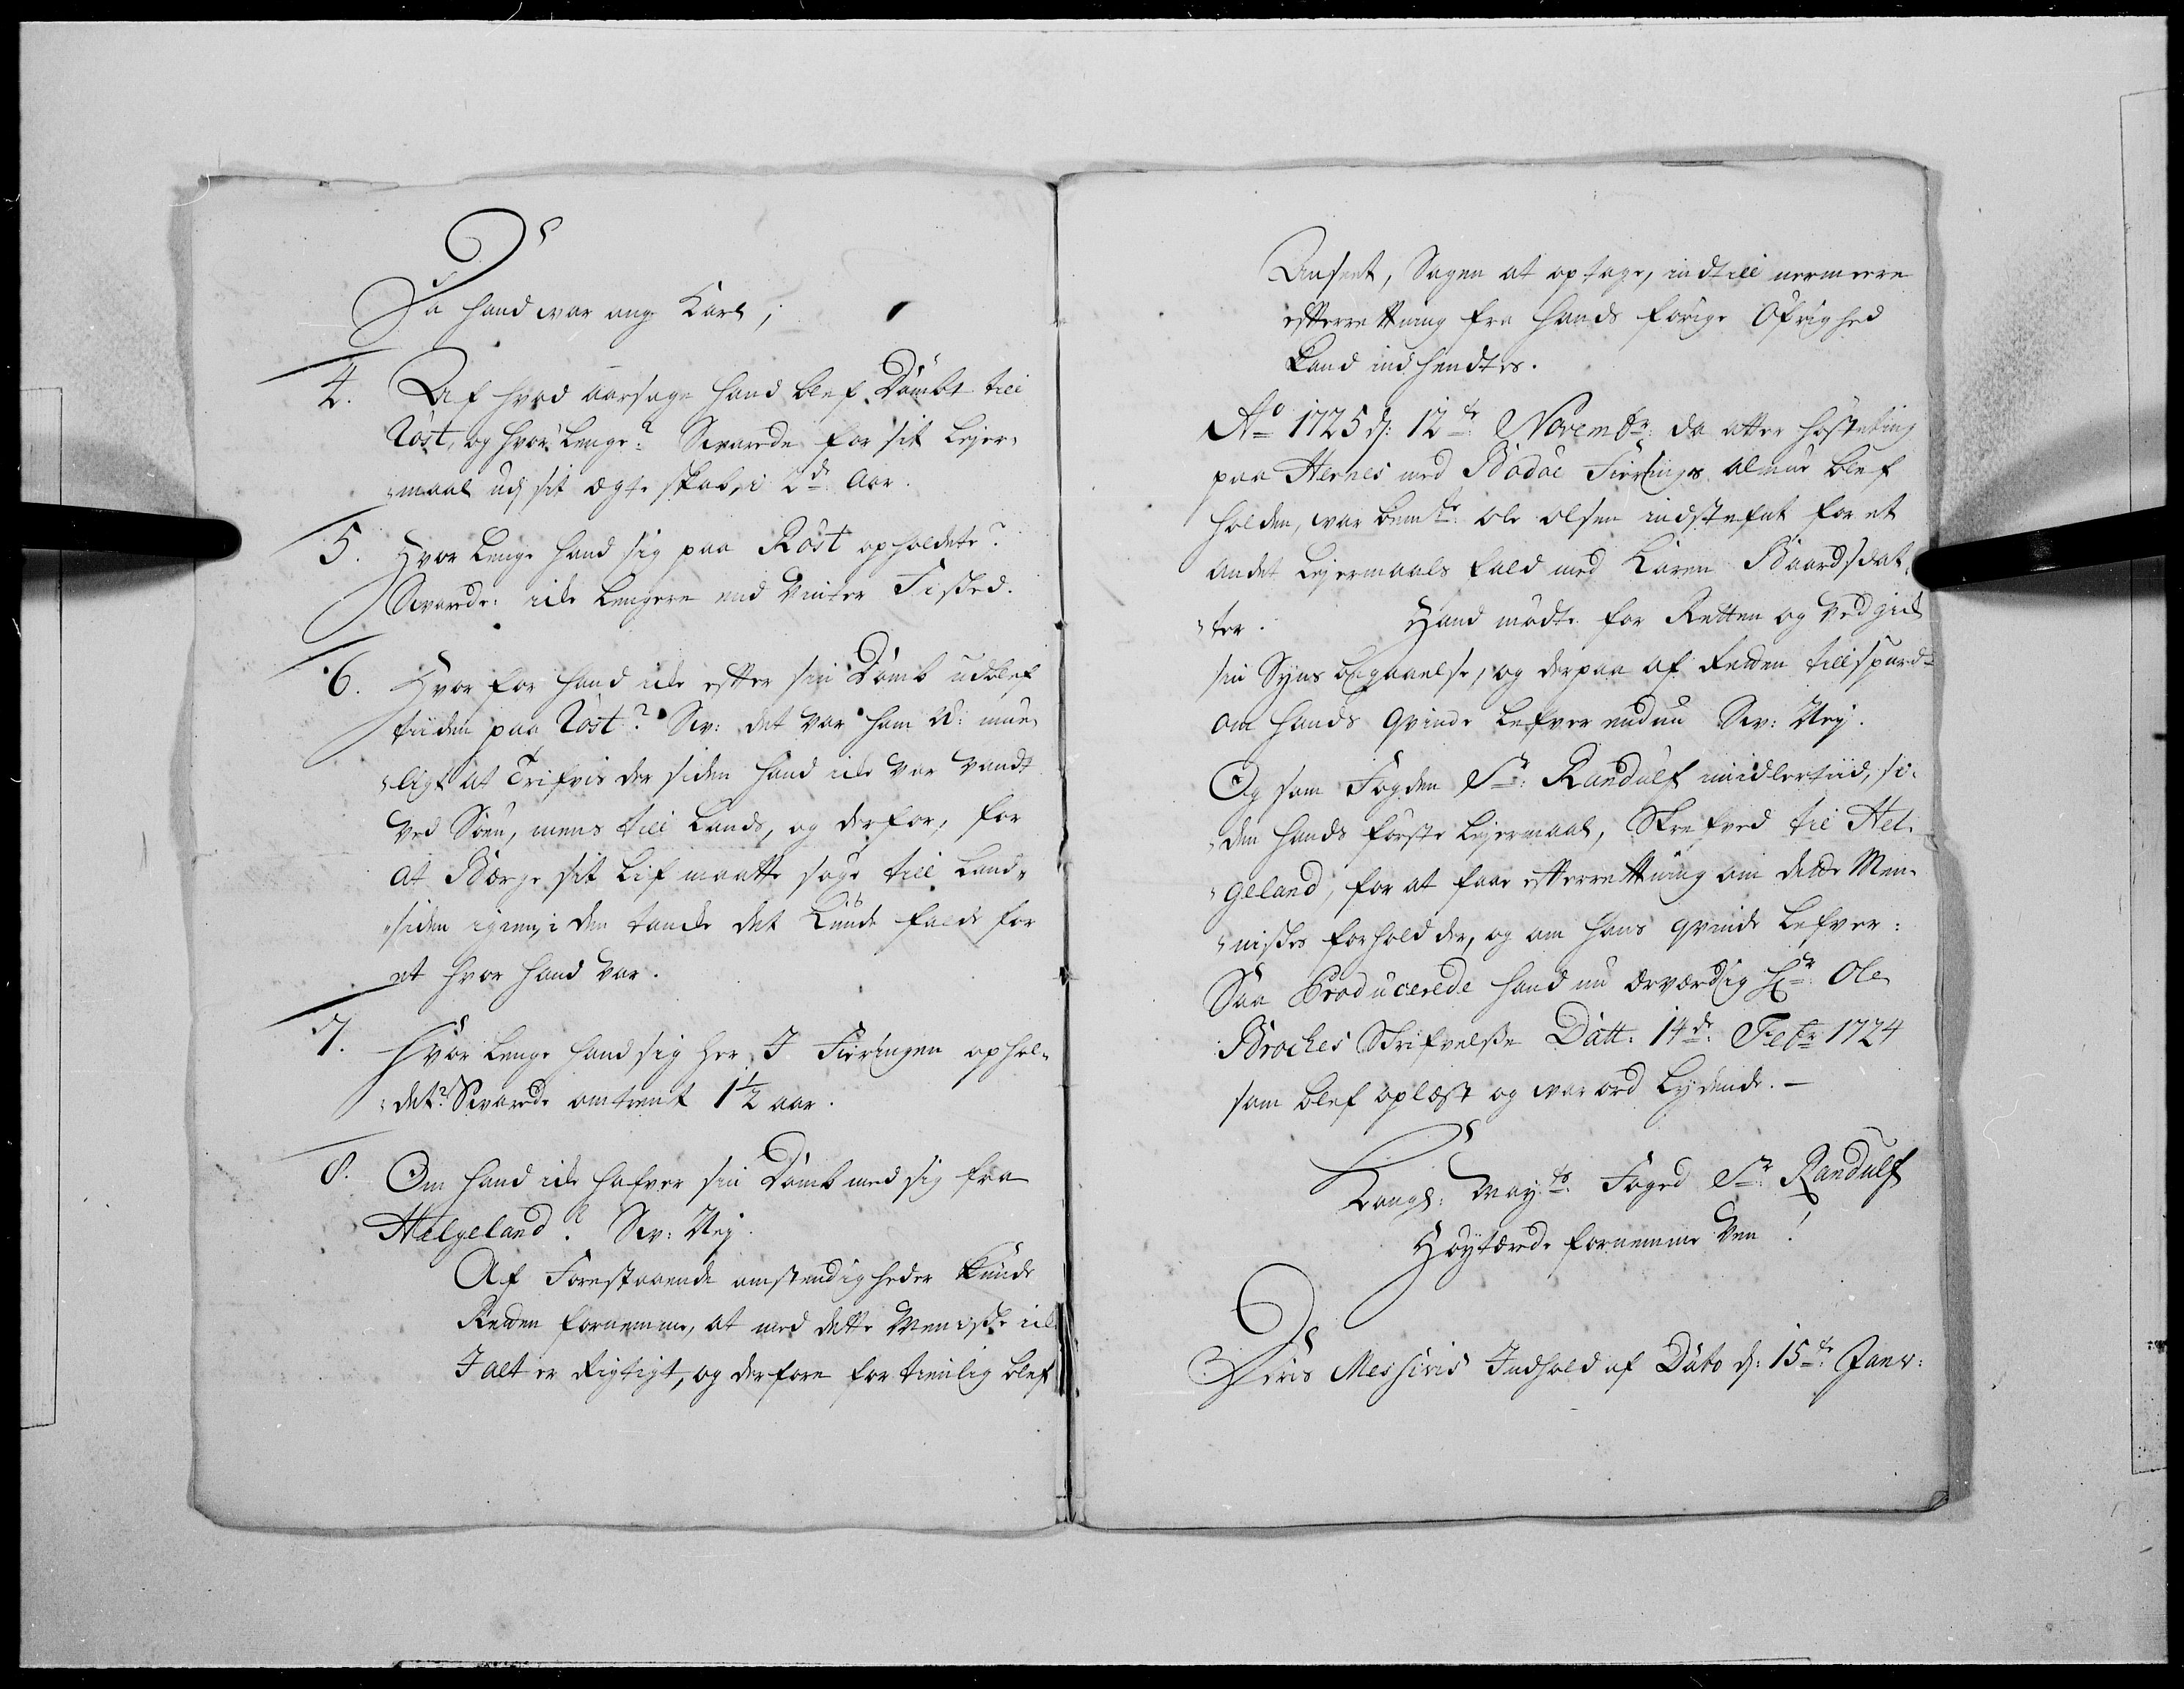 Da hand war ung Karl;
4. Af hvad aarsage hand blef Dömbt till
Röst, og hvor lenge? Svarede for sit lejer-
maal udj sit ægteskab, i 2de Aar.
5. Hvor lenge hand sig paa Röst opholdete?
Svarede: icke lengere end Vinter Fisked.
6. Hvor for hand icke efter sin Domb udblef
tiiden paa Röst? Sv: det var ham U: mue-
ligt at Trifvis der siden hand icke var vandt
ved Söen, mens till Lands, og derfor, for
at Bærge sit Lif maatte søge till Land-
siden igien, i den tancke det kunde falde for
et hvor hand var.
7. Hvor lenge hand sig her I Fieringen ophol-
det? Svarede omtrent 1 1/2 aar.
8. Om hand icke hafver sin Domb med sig fra
Helgeland? Sv: Nej.
Af Forestaaende omstendigheder kunde
Retten fornemme, at med dette Menniske icke
I alt er Rigtigt, og derfore for tienlig blef
Anseet, Sagen at optage, indtill nermere
efterretning fra hands forige Öfrighed
kand indhendtes.
Ao 1725 d: 12te Novembr: da atter høsteting
paa Hernes med Bodøe Fierings almue blef
holden, war bemte: Ole Olsen indstefnt for et
andet Lejermaals fald med Karen Baardsdat-
ter. Hand mødte for Retten og vedgick
sin Syns begaaelse, og derpaa af Retten tillspurd
om hands Qvinde lefver endnu Sv: Nej.
Og som Fogden Sr: Randulf midlertiid, si-
den hands første lejermaal, Skrefved til Hel-
geland, for at faae efterretning om dette Men-
niskes forhold der, og om hans qvinde lefver:
Saa Producerede hand nu ærværdig Hr: Ole
Broches Skrifvelse Datt: 14de: Febr: 1724
som blef oplæst og war ord lydende. —
Kongl: May:ts: Foged Sr: Randulf
Høytærede fornemme Ven!
Deris Messivis Indhold af Dato d: 15de: Janv: